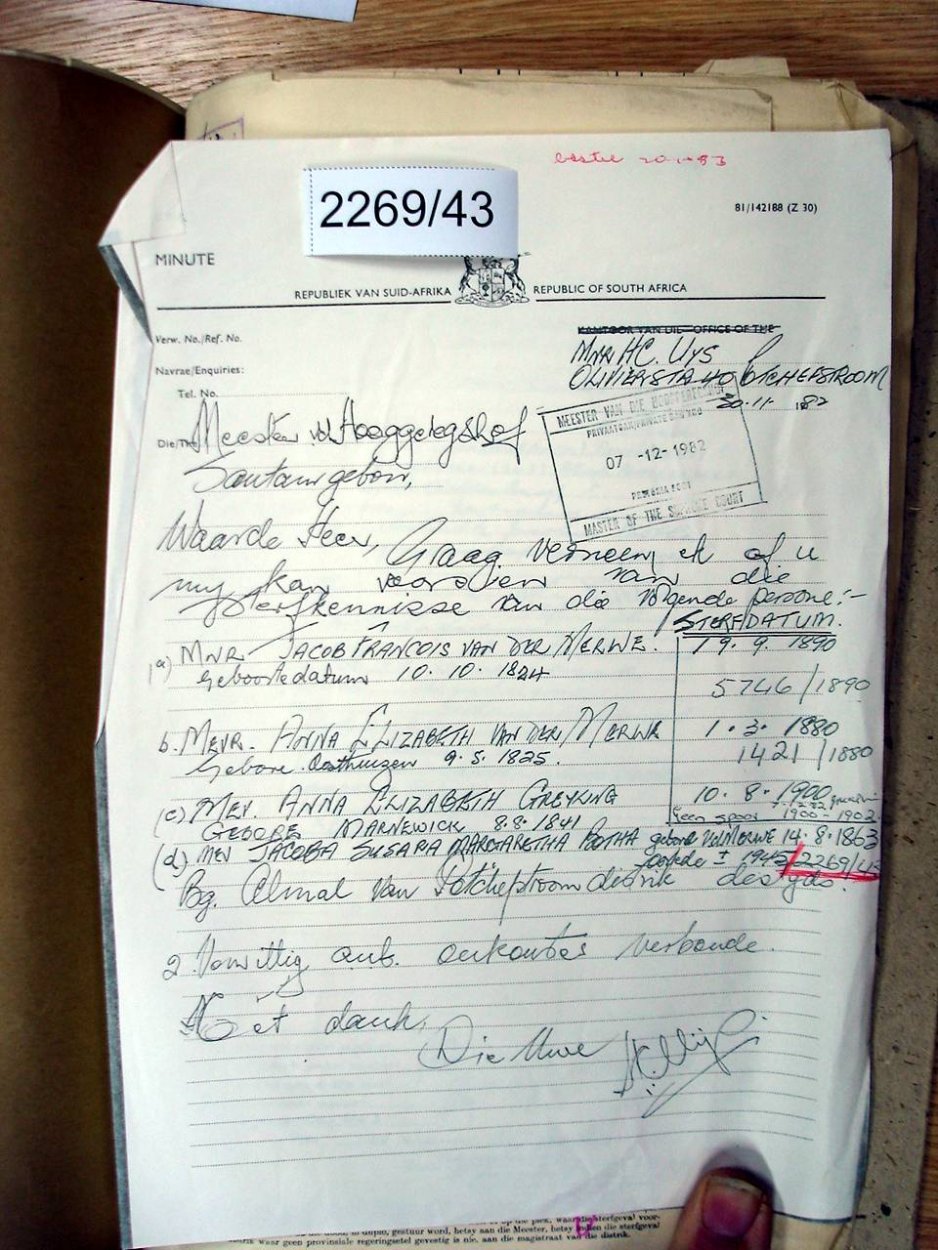 bestie 20-1-83
2269/43
81/142188 (Z 30)
MINUTE
REPUBLIEK VAN SUID-AFRIKA
REPUBLIC OF SOUTH AFRICA
Verw. No./Ref. No.
KANTOOR VAN DIE—OFFICE OF THE
MNR H.C. UYS
Navrae/Enquiries:
OLIVIERSTR 40 POTCHEFSTROOM
Tel. No.
30.11. 1982
Die/The Meester v d Hooggeregshof
MEESTER VAN DIE HOOGGEREGSHOF
PRIVAATSAK/PRIVATE BAG
07 -12- 1982
PRETORIA 0001
MASTER OF THE SUPREME COURT
Santamgebou,
Waarde Heer, Graag verneem ek of u
my kan voorsien van die
sterfkennisse van die volgende persone:-
STERFDATUM.
(a) MNR JACOB FRANCOIS VAN DER MERWE. 19. 9. 1890
Geboortedatum 10. 10. 1824
5746/1890
b. MEVR. ANNA ELIZABETH VAN DER MERWE 1. 3. 1880
Gebore Oosthuizen 9. 5. 1825.
1421/1880
(c) MEV. ANNA ELIZABETH GREYLING 10. 8. 1900
GEBORE MARNEWICK 8.8.1841
Geen spoor 1900-1902
(d) MEV JACOBA SUSARA MARGARETHA BOTHA gebore vd Merwe 14. 8. 1863
oorlede ± 1942 2269/43
Bg. Almal van Potchefstroom distrik destyds.
2. Verwittig asb. onkostes verbonde.
Met dank.
Die Uwe
HCUys
waar geen provinsiale regeringsetel gevestig is nie, aan die magistraat van die distrik.